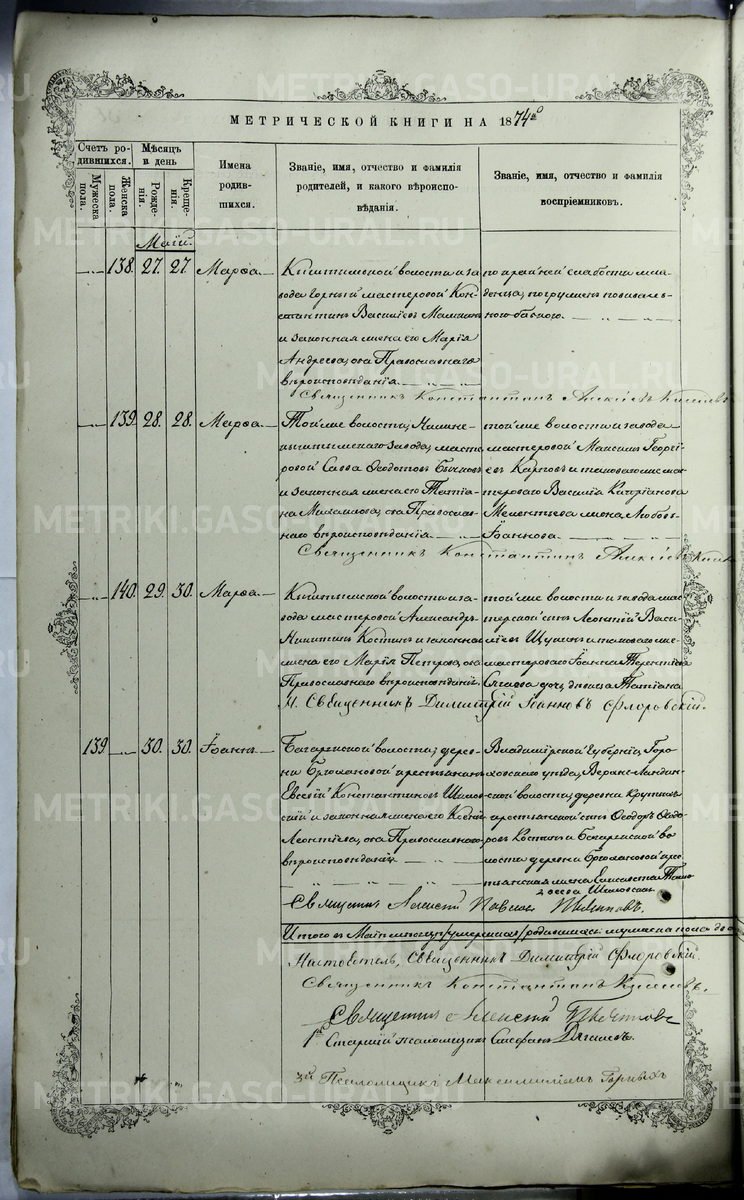 МЕТРИЧЕСКОЙ КНИГИ НА 1874й
Счетъ родившихся.
Мѣсяцъ и день
Мужеска пола.
Женска пола.
Рожденія.
Крещенія.
Имена родившихся.
Званіе, имя, отчество и фамилія родителей, и какого вѣроисповѣданія.
Званіе, имя, отчество и фамилія воспріемниковъ.
Маій.
138. 27. 27 Марѳа.
Кыштымской волости и за-
вода горный мастеровой Кон-
стантинъ Василіевъ
и законная жена его Марія
Андреева, оба Православнаго
вѣроисповѣданія.
по крайней слабости мла-
денца, погруженъ повиваль-
ною бабкою.
Священникъ Константинъ Алексіевъ
139. 28. 28. Марѳа.
Той же волости, Нижне-
кыштымскаго завода, масте-
ровой Савва Ѳеодотовъ Бычковъ
и законная жена его Татіа-
на Михаилова, оба Православ-
наго вѣроисповѣданія
той же волости и завода
мастеровой Максимъ Георгі-
евъ Карповъ и таковаго же ма-
стероваго Василія Кипріанова
Мелентьева жена Любовь
Іоаннова.
Священникъ Константинъ Алексіевъ
140. 29. 30. Марѳа.
Кыштымской волости и за-
вода мастеровой Александръ
Никитинъ Костинъ и законная
жена его Марія Петрова, оба
Православнаго вѣроисповѣданія.
той же волости и завода мас-
терской сынъ Леонтій Васи-
ліевъ Щукинъ и таковаго же
мастероваго Іоанна Терентіева
дочь, дѣвица Татіана
Н. Священникъ Димитрій Іоанновъ Флоровскій.
139 30. 30. Іоаннъ
волости, дерев-
ни крестьянинъ
Евсевій Константиновъ
и законная жена его Ксенія
Леонтіева, оба Православнаго
вѣроисповѣданія
Владимірской Губерніи, Горо-
ховскаго уѣзда, Верхне-Ландин-
ской волости, деревни
крестьянскій сынъ Ѳеодоръ Ѳеодо-
ровъ Костинъ и во-
лости деревни кре-
стьянская жена Елисавета
Священникъ Алексій Павловъ
Итого въ Маіѣ
Настоятель, Священникъ Димитрій Флоровскій.
Священникъ Константинъ
Священникъ Алексій
1й Старшій псаломщикъ Стефанъ Дягилевъ.
3й Псаломщикъ Максимиліанъ Горныхъ
METRIKI.GASO-URAL.RU